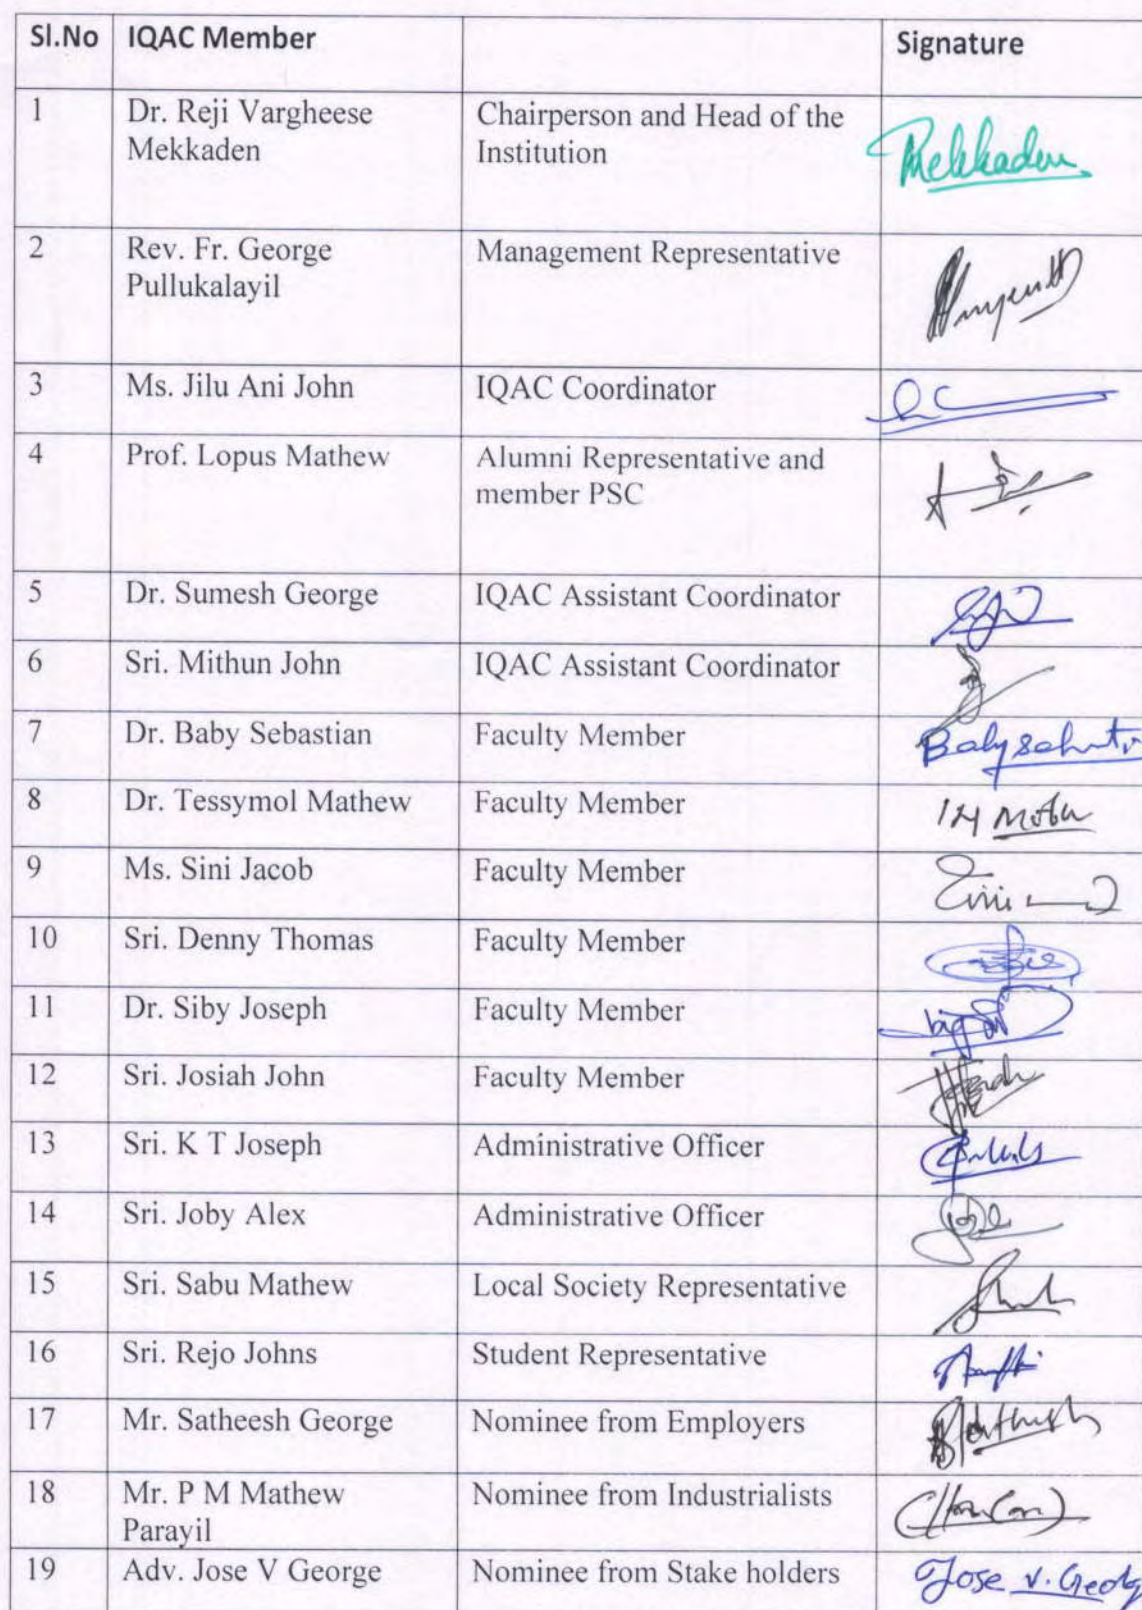 Sl.No IQAC Member Signature
1 Dr. Reji Vargheese Chairperson and Head of the
Mekkaden Institution Mekkaden
2 Rev. Fr. George Management Representative
Pullukalayil
3 Ms. Jilu Ani John IQAC Coordinator
4 Prof. Lopus Mathew Alumni Representative and
member PSC
5 Dr. Sumesh George IQAC Assistant Coordinator
6 Sri. Mithun John IQAC Assistant Coordinator
7 Dr. Baby Sebastian Faculty Member
8 Dr. Tessymol Mathew Faculty Member
9 Ms. Sini Jacob Faculty Member
10 Sri. Denny Thomas Faculty Member
11 Dr. Siby Joseph Faculty Member
12 Sri. Josiah John Faculty Member
13 Sri. K T Joseph Administrative Officer
14 Sri. Joby Alex Administrative Officer
15 Sri. Sabu Mathew Local Society Representative
16 Sri. Rejo Johns Student Representative
17 Mr. Satheesh George Nominee from Employers
18 Mr. P M Mathew Nominee from Industrialists
Parayil
19 Adv. Jose V George Nominee from Stake holders Jose V. Georg